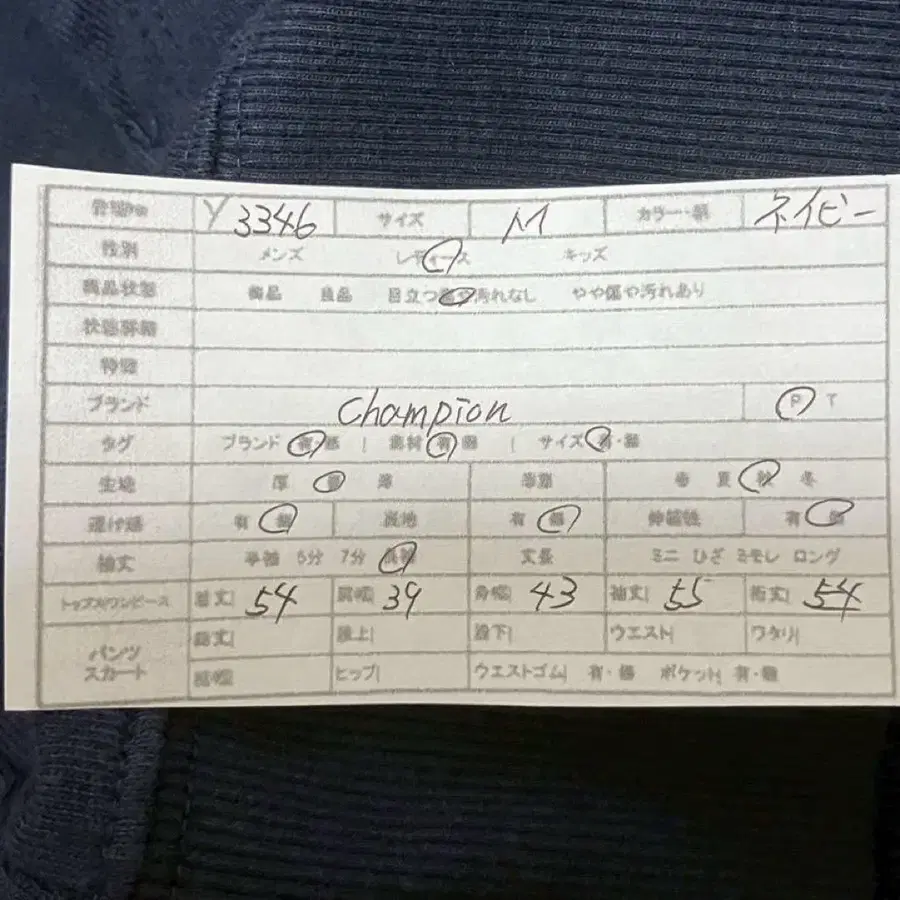 Y3346 サイズ M カラー・柄 ネイビー
性別 メンズ レディース キッズ
商品状態 新品 良品 目立つ傷や汚れなし やや傷や汚れあり
状態詳細
特徴
ブランド Champion P T
タグ ブランド 有・無 | 素材 有・無 | サイズ 有・無
生地 厚 普 薄 春 夏 秋 冬
透け感 有 無 裏地 有 無 伸縮性 有 無
袖丈 半袖 5分 7分 長袖 丈長 ミニ ひざ ミモレ ロング
トップス/ワンピース 着丈 54 肩幅 39 身幅 43 袖丈 55 裄丈 54
パンツ スカート 総丈 股上 股下 ウエスト ワタリ
裾幅 ヒップ ウエストゴム 有・無 ポケット 有・無